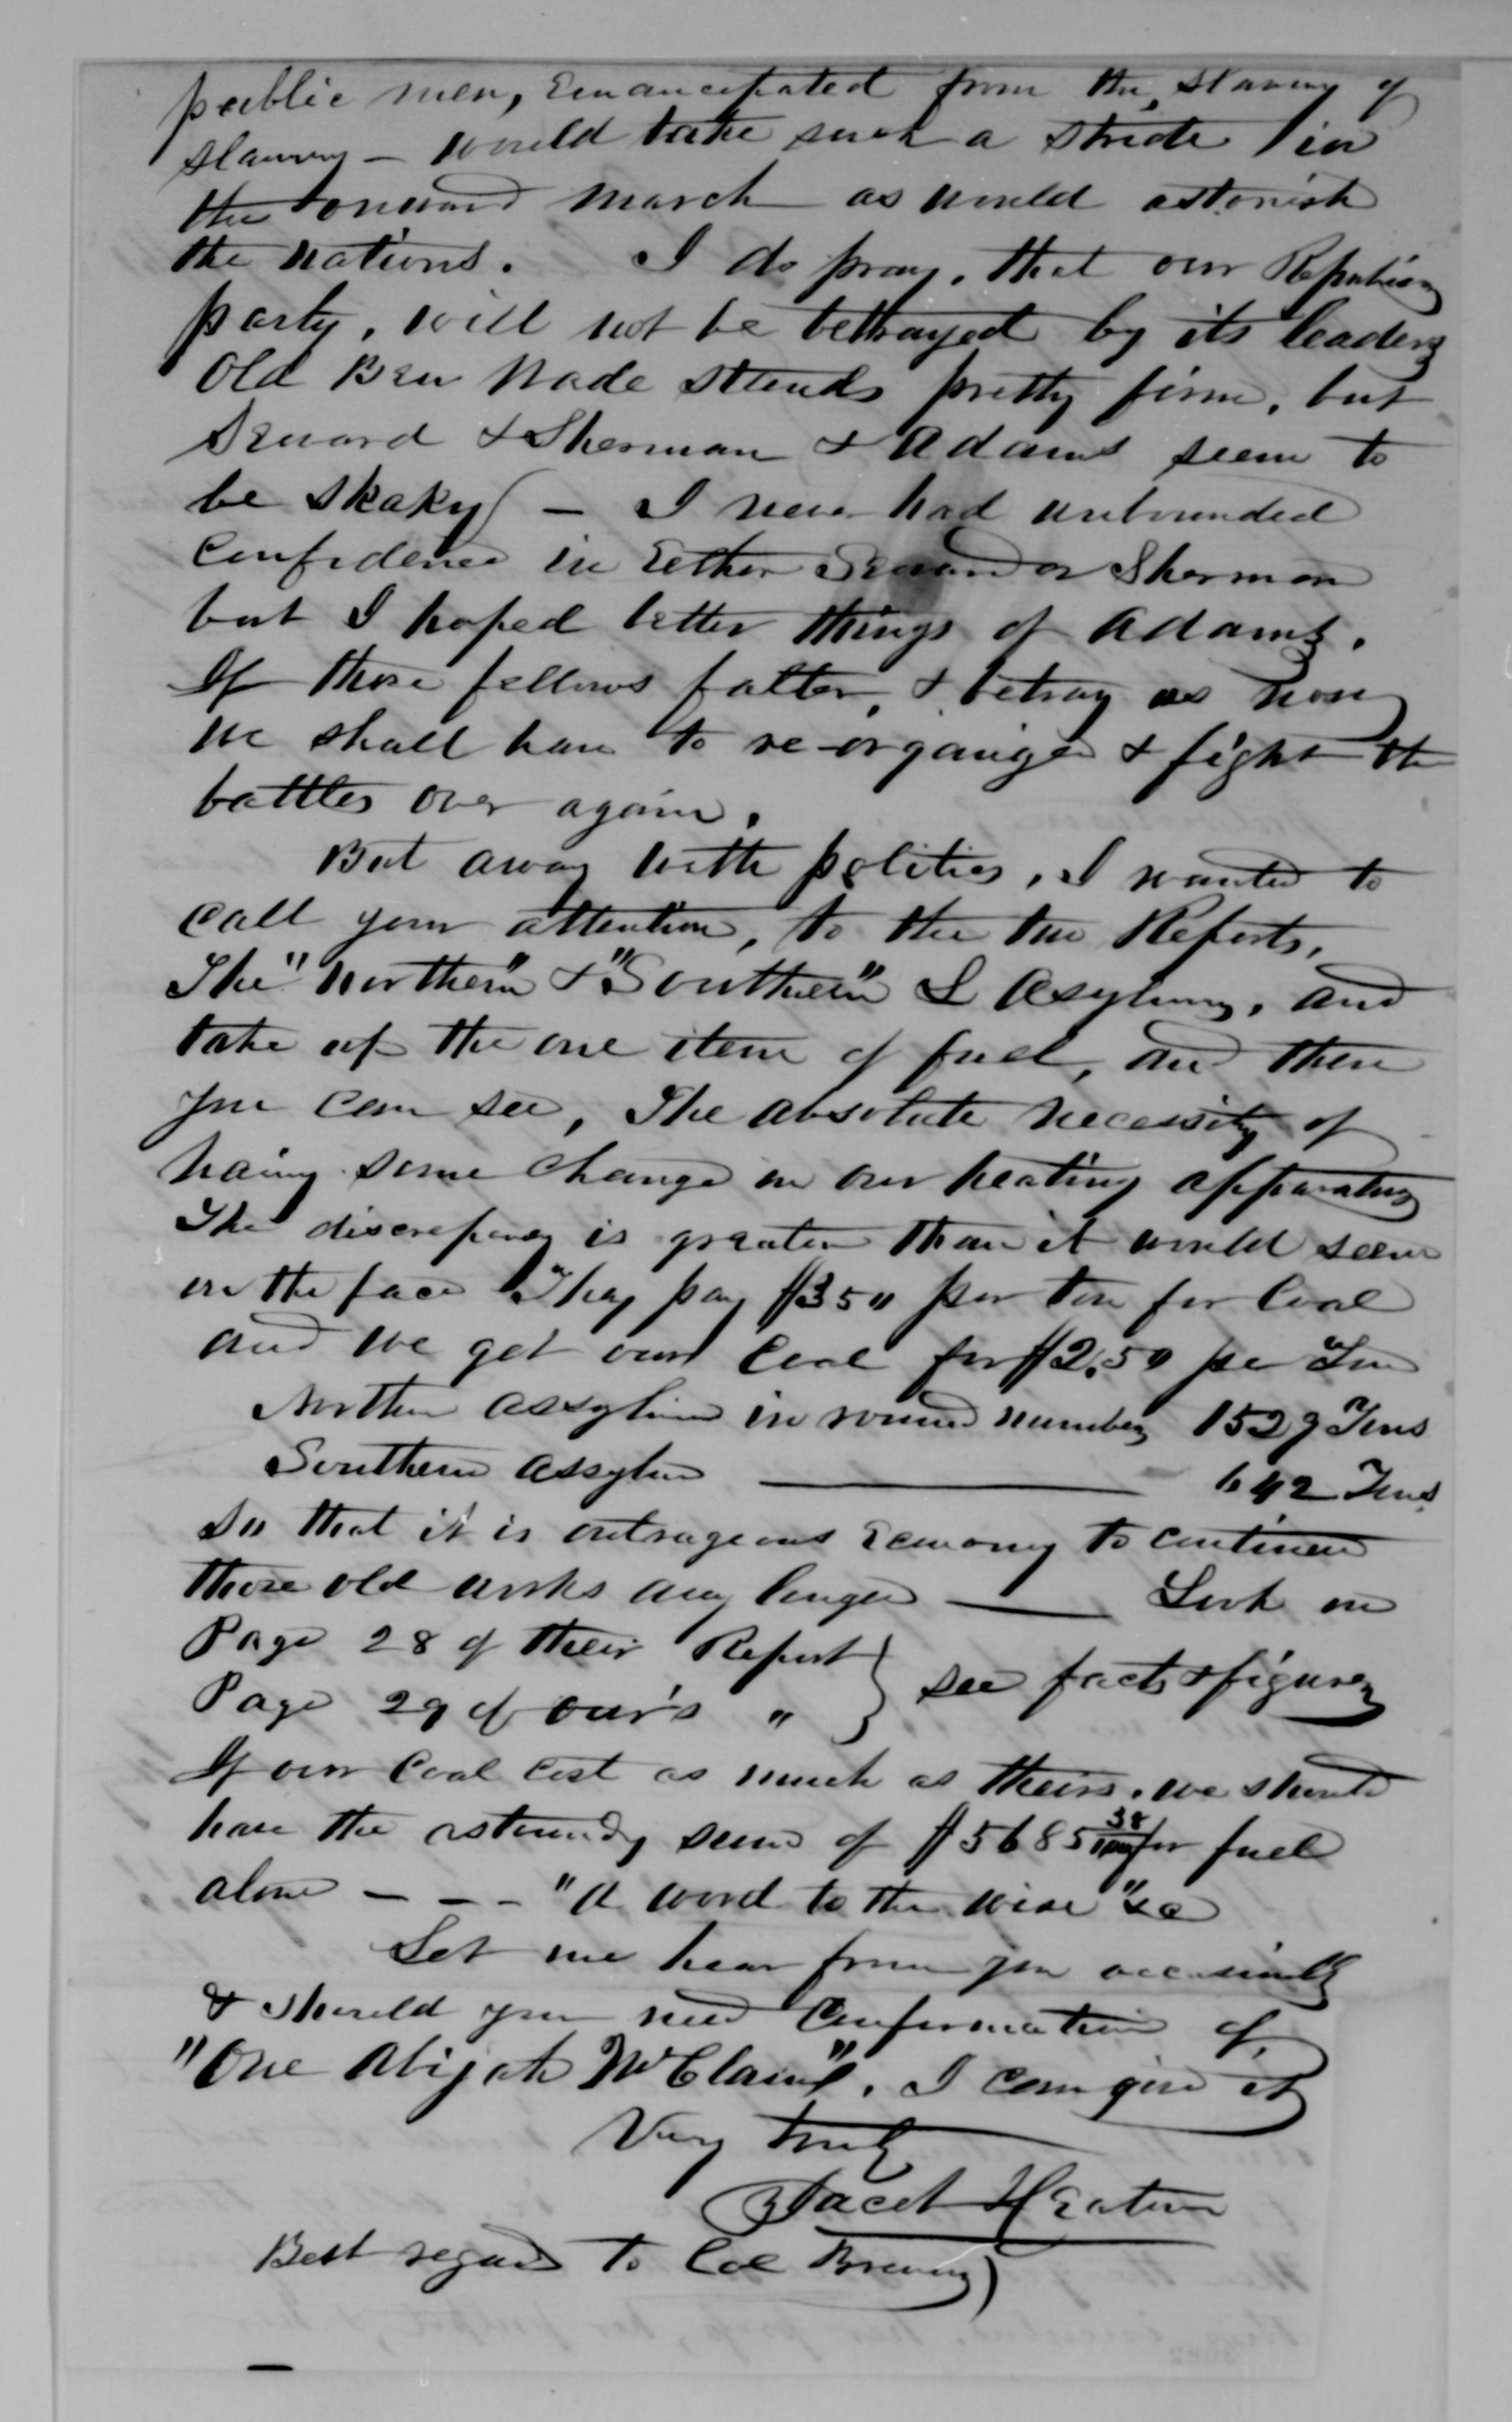 public men, emancipated from the slavery of
slavery — would take such a stride in
the onward march as would astonish
the nations. I do pray, that our Republican
party, will not be betrayed by its leaders
Old Ben Wade stands pretty firm, but
Seward & Sherman & Adams seem to
be skaky — I never had unbounded
confidence in Either Seward or Sherman
but I hoped better things of Adams.
If those fellows falter, & betray us now
we shall have to re-organize & fight the
battles over again.
But away with politics, I wanted to
call your attention, to the two Reports,
The "Northern" & "Southern" L Asylums, and
take up the one item of fuel, and there
you can see, The absolute necessity of
having some change in our heating apparatus
The discrepancy is greater than it would seem
on the face They pay $3 50 per ton for Coal
and we get our Coal for $2.50 per Ton
Northern Assylum in round numbers 1529 Tons
Southern Assylum ——— 642 Tons
So that it is outrageous Economy to continue
those old works any longer — Look on
Page 28 of their Report } see facts & figures
Page 29 of our's "
If our Coal cost as much as theirs, we should
have the astounding sum of $5685 38/100 for fuel
alone - - - "A word to the wise" &c
Let me hear from you occasionally
& should you need Confirmation of,
"One Abijah McClain", I can give it
Very truly
Jacob Heaton
Best regards to Col